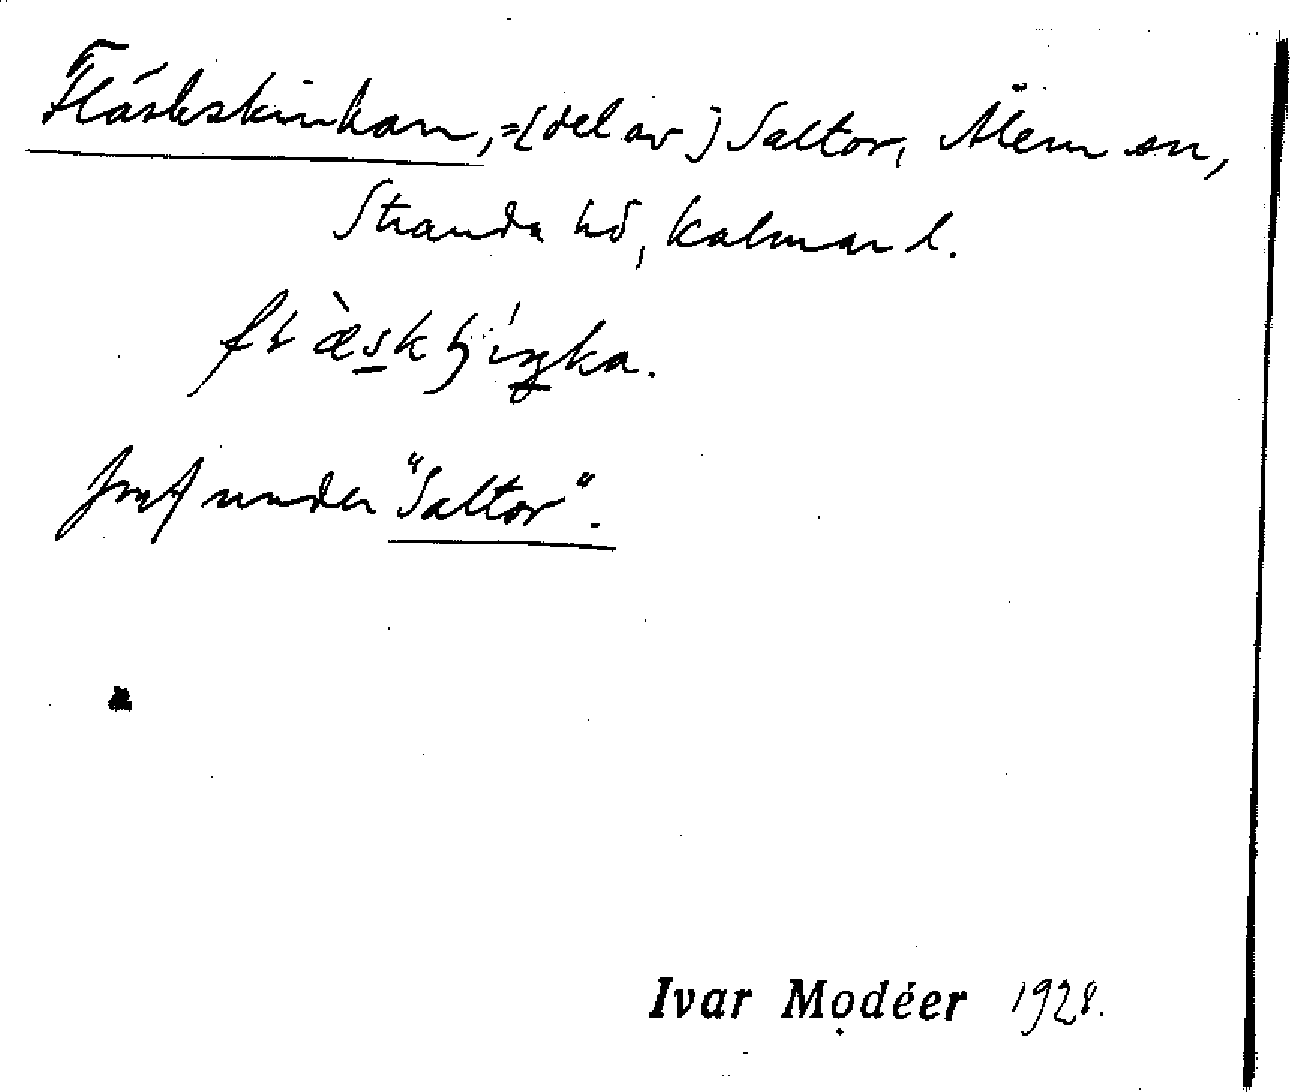 Fläskskinkan, =[del av] Saltor, Ålem sn,
Stranda hd, Kalmar l.
Jmf under "Saltor".
Ivar Modéer 1928.